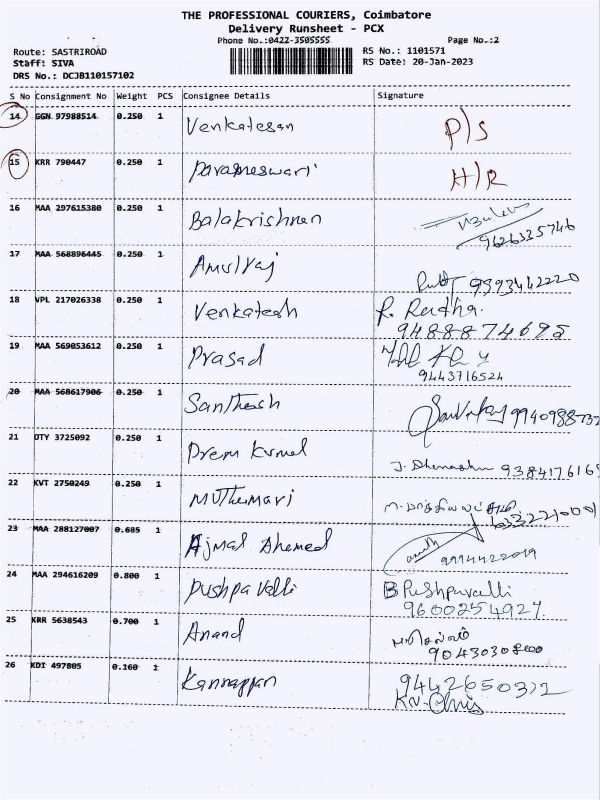 THE PROFESSIONAL COURIERS, Coimbatore
Delivery Runsheet - PCX
Phone No.:0422-3505555 Page No.:2
Route: SASTRIROAD RS No.: 1101571
Staff: SIVA RS Date: 20-Jan-2023
DRS No.: DCJB110157102
S No Consignment No Weight PCS Consignee Details Signature
14 GGN 97988514 0.250 1 Venkatesan P/S
15 KRR 790447 0.250 1 Parameswari H/R
16 MAA 297615380 0.250 1 Balakrishnan
9626335746
17 MAA 568896445 0.250 1 Amulraj
9393442220
18 VPL 217026338 0.250 1 Venkatesh R. Radha.
9488874695
19 MAA 569053612 0.250 1 Prasad
9443716524
20 MAA 568617906 0.250 1 Santhosh
21 DTY 3725092 0.250 1 Prem Kumal
22 KVT 2750249 0.250 1 Muthumari
23 MAA 288127007 0.685 1 Ajmal Ahemed
9994422019
24 MAA 294616209 0.800 1 Pushpavalli B Pushpavalli
9600254927
25 KRR 5638543 0.700 1 Anand
26 KDI 497805 0.160 1 Kannappan